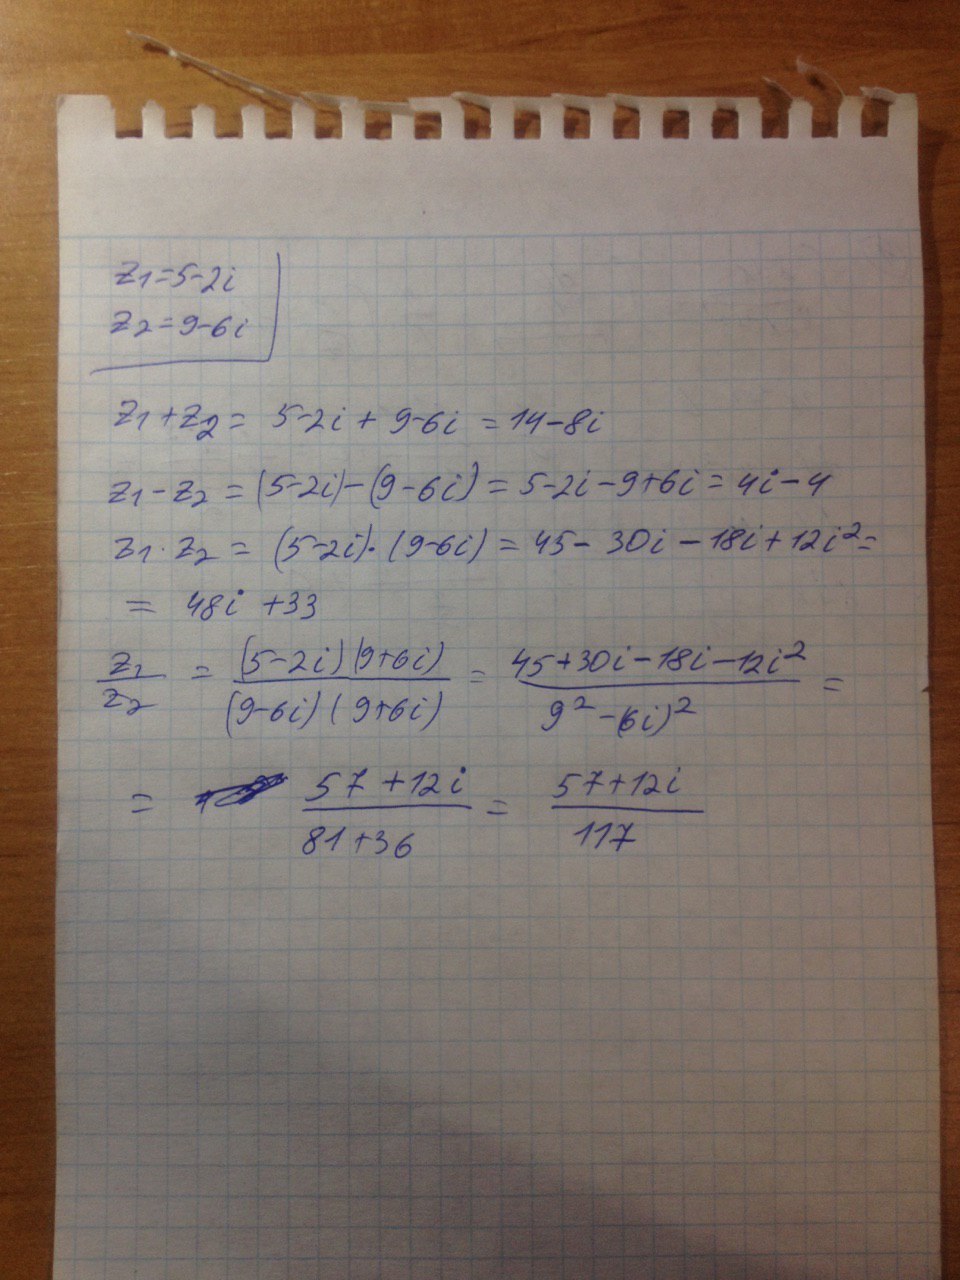 z1=5-2i
z2=9-6i
z1+z2= 5-2i+9-6i=14-8i
z1-z2=(5-2i)-(9-6i)=5-2i-9+6i=4i-4
z1·z2=(5-2i)·(9-6i)=45-30i-18i+12i²=
= 48i+33
z1/z2 = (5-2i)(9+6i)/(9-6i)(9+6i) = 45+30i-18i-12i²/9²-(6i)² =
= 57+12i/81+36 = 57+12i/117